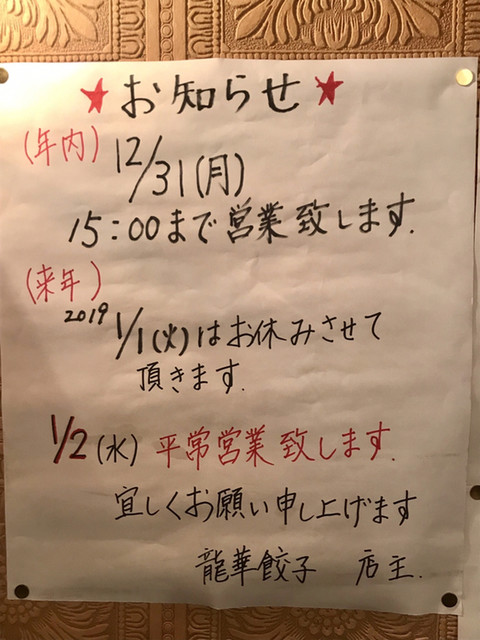 ★お知らせ★
(年内)
12/31(月)
15:00まで営業致します.
(来年)
2019 1/1(火)はお休みさせて
頂きます.
1/2(水)平常営業致します.
宜しくお願い申し上げます
龍華餃子 店主.